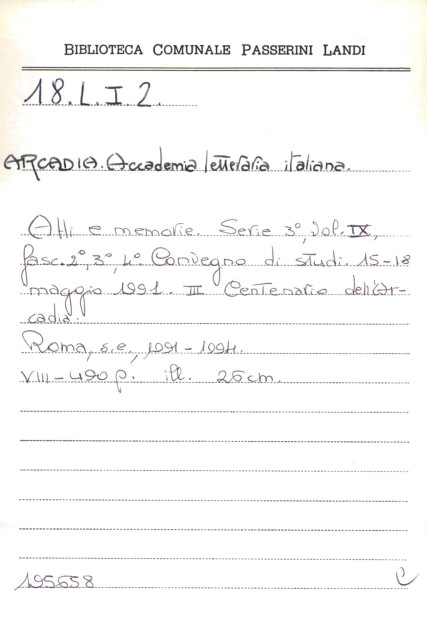 BIBLIOTECA COMUNALE PASSERINI LANDI
18. L. I 2.
ARCADIA. Accademia letteraria italiana.
Atti e memorie. Serie 3°, Vol. IX,
fasc. 2°, 3°, 4°. Convegno di studi. 15-18
maggio 1991. III Centenario dell'Ar-
cadia.
Roma, s.e., 1991-1994.
VIII-490 p. ill. 26 cm.
195658